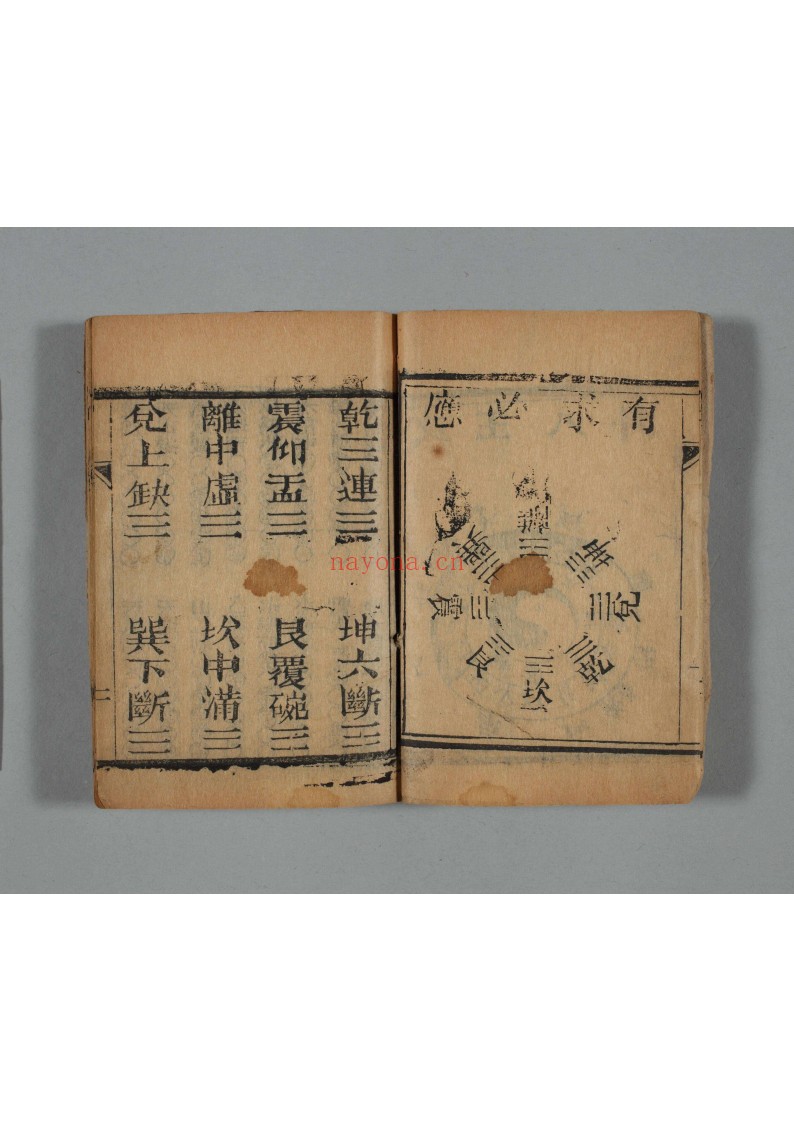 有求必應
離
坤
兌
乾
坎
艮
震
巽
乾三連☰
坤六斷☷
震仰盂☳
艮覆碗☶
離中虛☲
坎中滿☵
兌上缺☱
巽下斷☴
二
nayona.cn